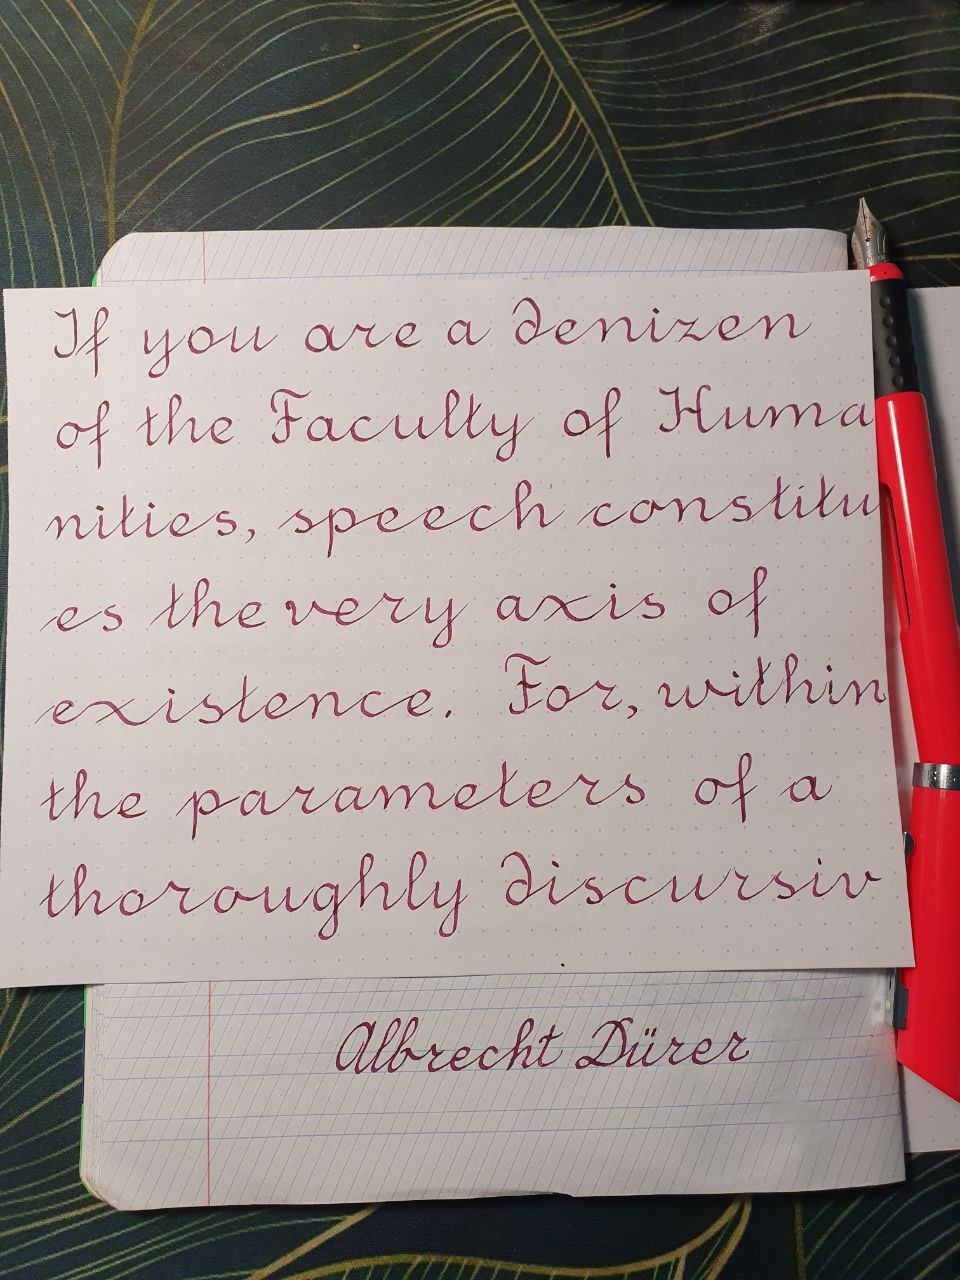 If you are a denizen
of the Faculty of Huma
nities, speech constitu
es the very axis of
existence. For, within
the parameters of a
thoroughly discursiv
Albrecht Dürer